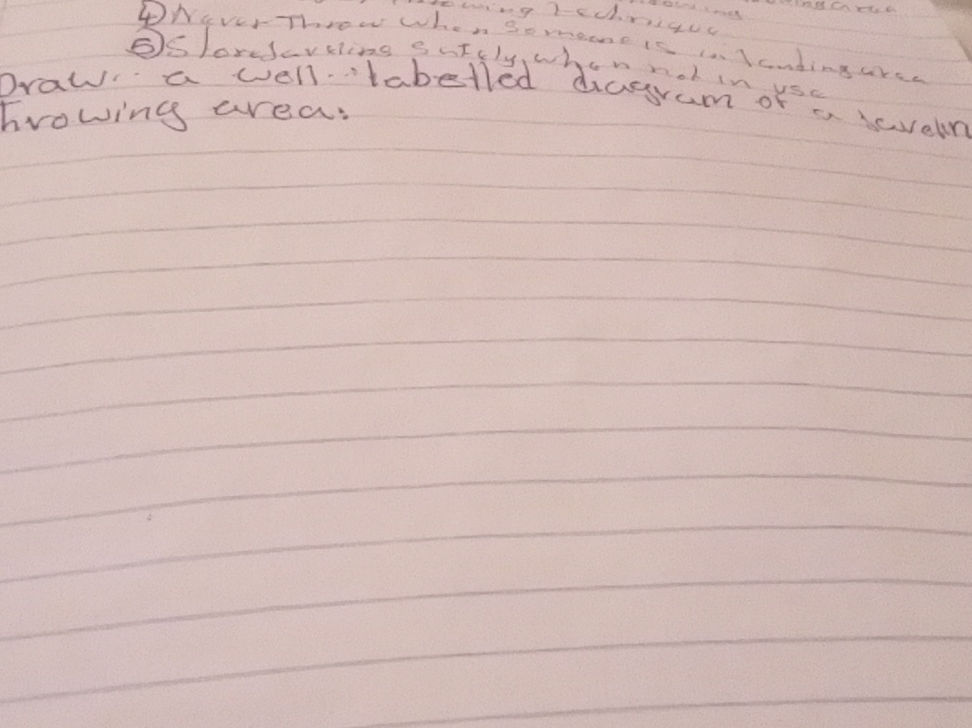 Throwing Technique
④ Never Throw when someone is in landing area
⑤ Store Javelins safely when not in use
Draw a well labelled diagram of a Javelin
Throwing area.